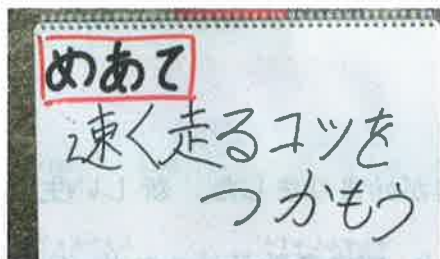 めあて
速く走るコツを
つかもう